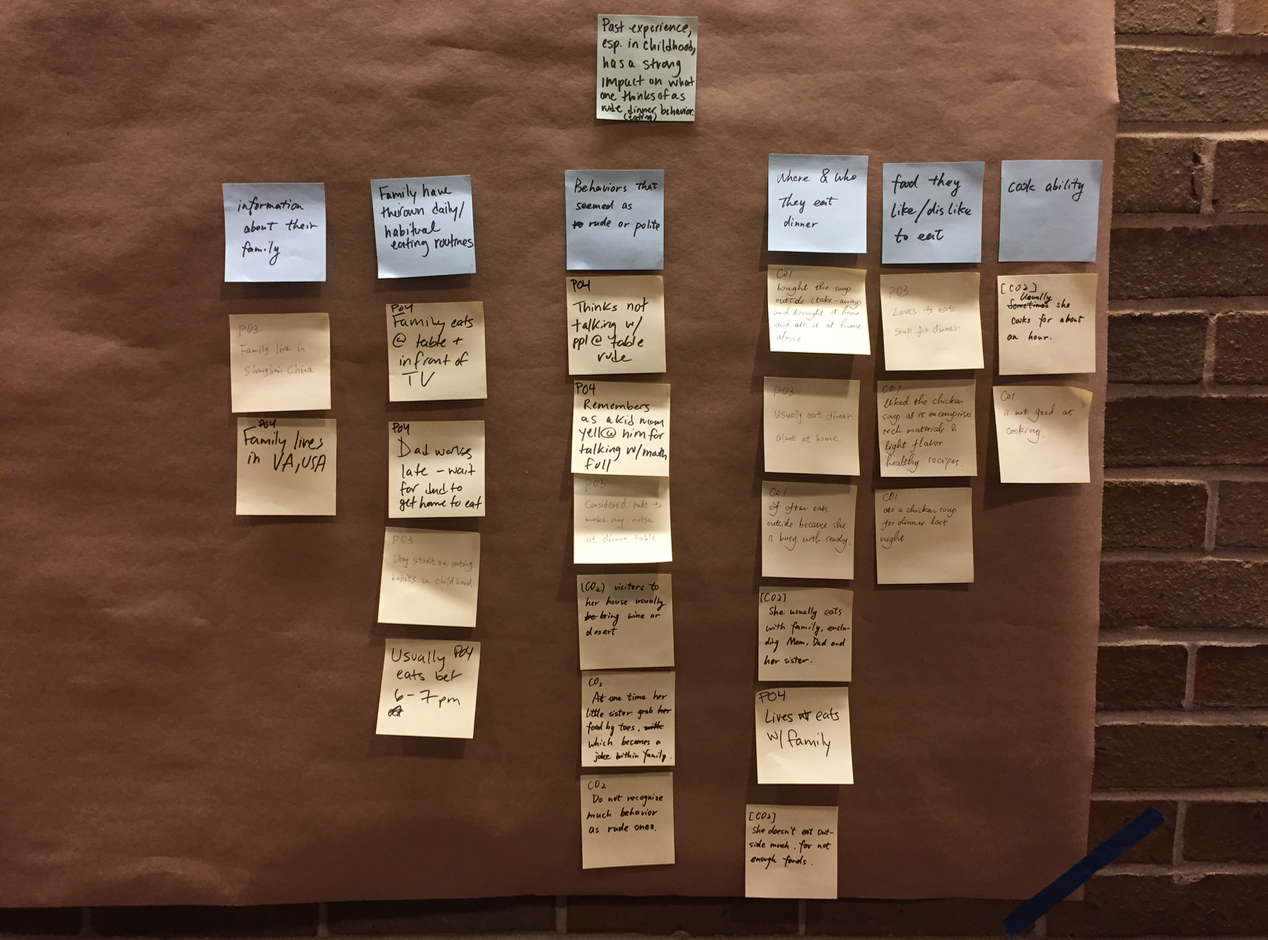 Past experience,
esp. in childhood,
has a strong
impact on what
one thinks of as
rude dinner behavior.
(eating)
information
about their
family
P03
Family live in
Shanghai China
P04
Family lives
in VA, USA
Family have
thrown daily/
habitual
eating routines
P04
Family eats
@ table +
infront of
TV
P04
Dad works
late - wait
for dad to
get home to eat
P03
Very strict on eating
habits in childhood
Usually P04
eats bet
6-7pm
Behaviors that
seemed as
rude or polite
P04
Thinks not
talking w/
ppl @ table
rude
P04
Remembers
as a kid mom
yell @ him for
talking w/mouth
full
P03
Considered rude to
make any noise
at dinner table
(CO2) visitors to
her house usually
bring wine or
desert
CO2
At one time her
little sister grab her
food by toes,
which becomes a
joke within family.
CO2
Do not recognize
much behavior
as rude ones.
Where & who
They eat
dinner
C01
bought the soup
outside (take-away)
and brought it home
and ate it at home
alone.
P03
Usually eat dinner
alone at home.
C01
often eats
outside because she
is busy with
[CO2]
She usually eats
with family, inclu-
ding Mom, Dad and
her sister.
P04
Lives eats
w/family
[CO2]
She doesn't eat out-
side much, for not
enough fonds.
food they
like/dislike
to eat
P03
Loves to eat
soup for dinner
C01
liked the chicken
soup as it comprises
rich materials &
light flavor
healthy recipes.
C01
ate a chicken soup
for dinner last
night
cook ability
[CO2]
Usually
sometimes she
cooks for about
an hour.
C01
is not good at
cooking.